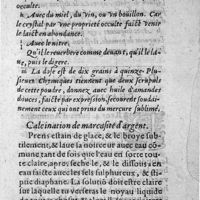 occulte.
h Avec du miel, du vin, ou un bouillon. Car
le crystal par une proprieté occulte faict venir
le laict en abondance.
i Avec nitre.
Qu'il le reverbere comme devant, qu'il le la-
ve, puis le digere.
La dose est de dix grains à quinze. Plu-
sieurs Chymiques tiennent que deux scrupules
de ceste poudre, donnez avec huile d'amandes
douces, faicte par expression, secourent soudai-
nement ceux qui ont prins du mercure sublimé.
Calcination de marcasite d'argent.
Prens estain de glace, & le broye sub-
tilement, & laue la noirceur auec eau com-
mune tant de fois que l'eau en forte tou-
te claire, apres seche le, & le dissouts en
eau faicte auec les sels sulphureux, & sti-
ptic diaphane. La solution doit estre claire
sur laquelle tu verseras le noyau liquide